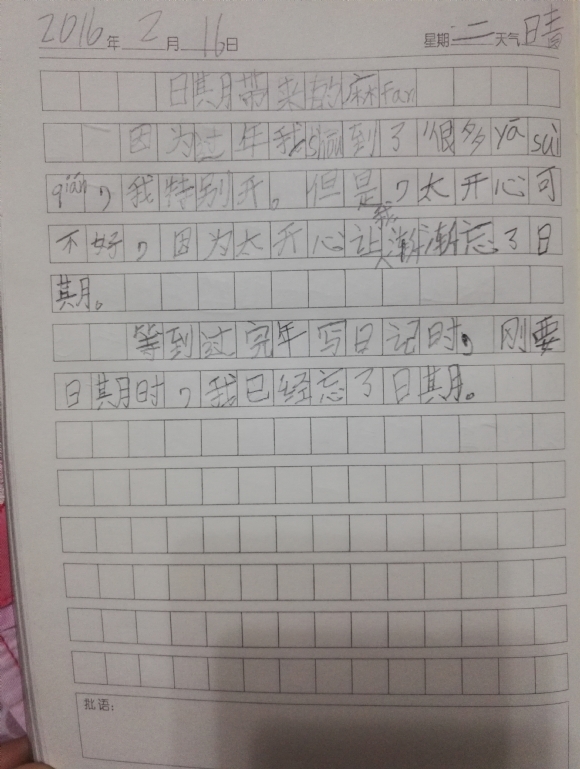 2016年2月16日 星期二天气晴
日期带来的麻fan
因为过年我shou到了很多yā suì
qián,我特别开。但是,太开心可
不好,因为太开心让我渐渐忘了日
期。
等到过完年写日记时,刚要
日期时,我已经忘了日期。
批语: